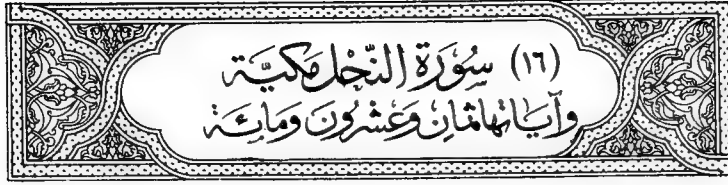 (١٦) سُورَةُ النَّحْلِ مَكِيَّة
وَآيَاتُهَا ثَمَانٍ وَعِشْرُونَ وَمَائِة